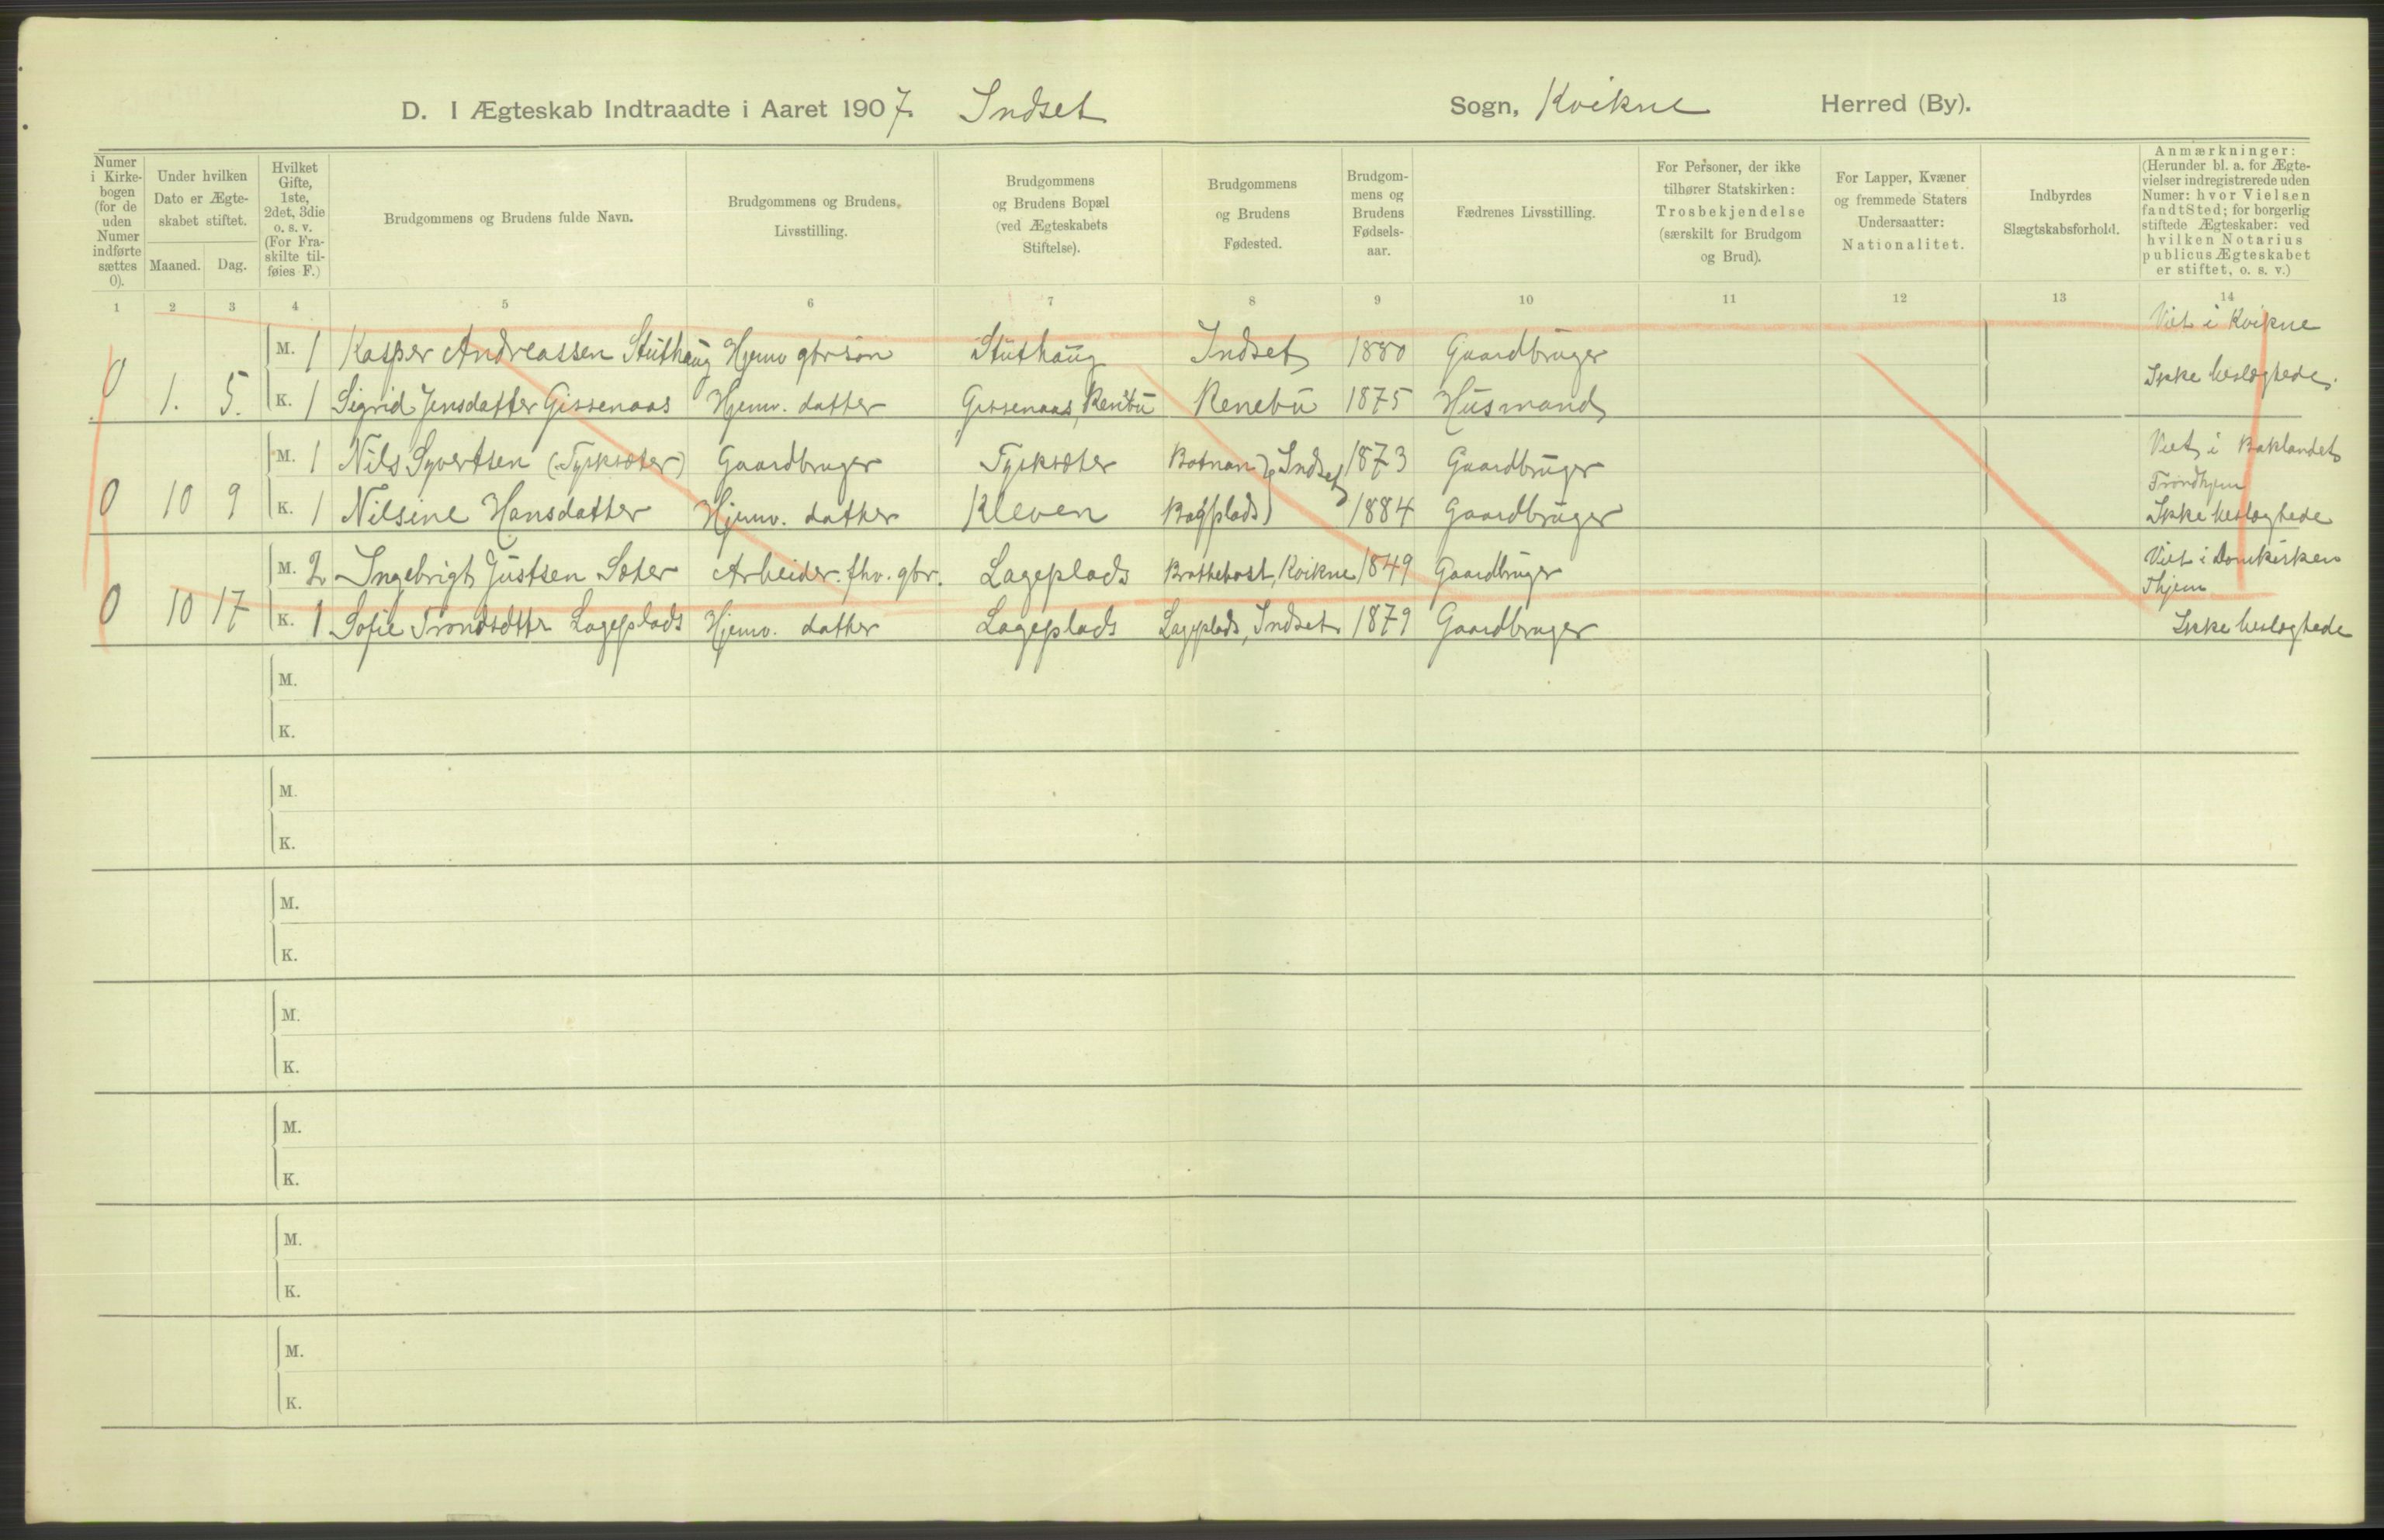 D. I Ægteskab Indtraadte i Aaret 1907. Indset Sogn, Kvikne Herred (By).
Numer i Kirke-bogen (for de uden Numer indførte sættes 0).
Under hvilken Dato er Ægte-skabet stiftet.
Maaned. Dag.
Hvilket Gifte, 1ste, 2det, 3die o. s. v. (For Fra-skilte til-føies F.)
Brudgommens og Brudens fulde Navn.
Brudgommens og Brudens Livsstilling.
Brudgommens og Brudens Bopæl (ved Ægteskabets Stiftelse).
Brudgommens og Brudens Fødested.
Brudgom-mens og Brudens Fødsels-aar.
Fædrenes Livsstilling.
For Personer, der ikke tilhører Statskirken: Trosbekjendelse (særskilt for Brudgom og Brud).
For Lapper, Kvæner og fremmede Staters Undersaatter: Nationalitet.
Indbyrdes Slægtskabsforhold.
Anmærkninger: (Herunder bl. a. for Ægte-vielser indregistrerede uden Numer: hvor Vielsen fandt Sted; for borgerlig stiftede Ægteskaber: ved hvilken Notarius publicus Ægteskabet er stiftet, o. s. v.)
1 2 3 4 5 6 7 8 9 10 11 12 13 14
M. 1 Kasper Andreassen Stuthaug Hjemv gbr søn Stuthaug Indset 1880 Gaardbruger Viet i Kvikne
0 1. 5. K. 1 Sigrid Jensdatter Gissenaas Hjemv. datter Gissenaas, Renbu Renebu 1875 Husmand Ikke beslægtede.
M. 1 Nils Syvertsen (Tyksæter) Gaardbruger Tyksæter Botnan } Indset 1873 Gaardbruger Viet i Baklandet Trondhjem
0 10 9 K. 1 Nilsine Hansdatter Hjemv. datter Kleven 1884 Gaardbruger Ikke beslægtede
M. 2 Ingebrigt Justsen Sæter Arbeider. fhv. gbr. Lageplads Kvikne 1849 Gaardbruger Viet i Domkirken Thjem
0 10 17 K. 1 Sofie Trondsdttr Lageplads Hjemv. datter Lageplads Lageplads, Indset 1879 Gaardbruger Ikke beslægtede
M.
K.
M.
K.
M.
K.
M.
K.
M.
K.
M.
K.
M.
K.